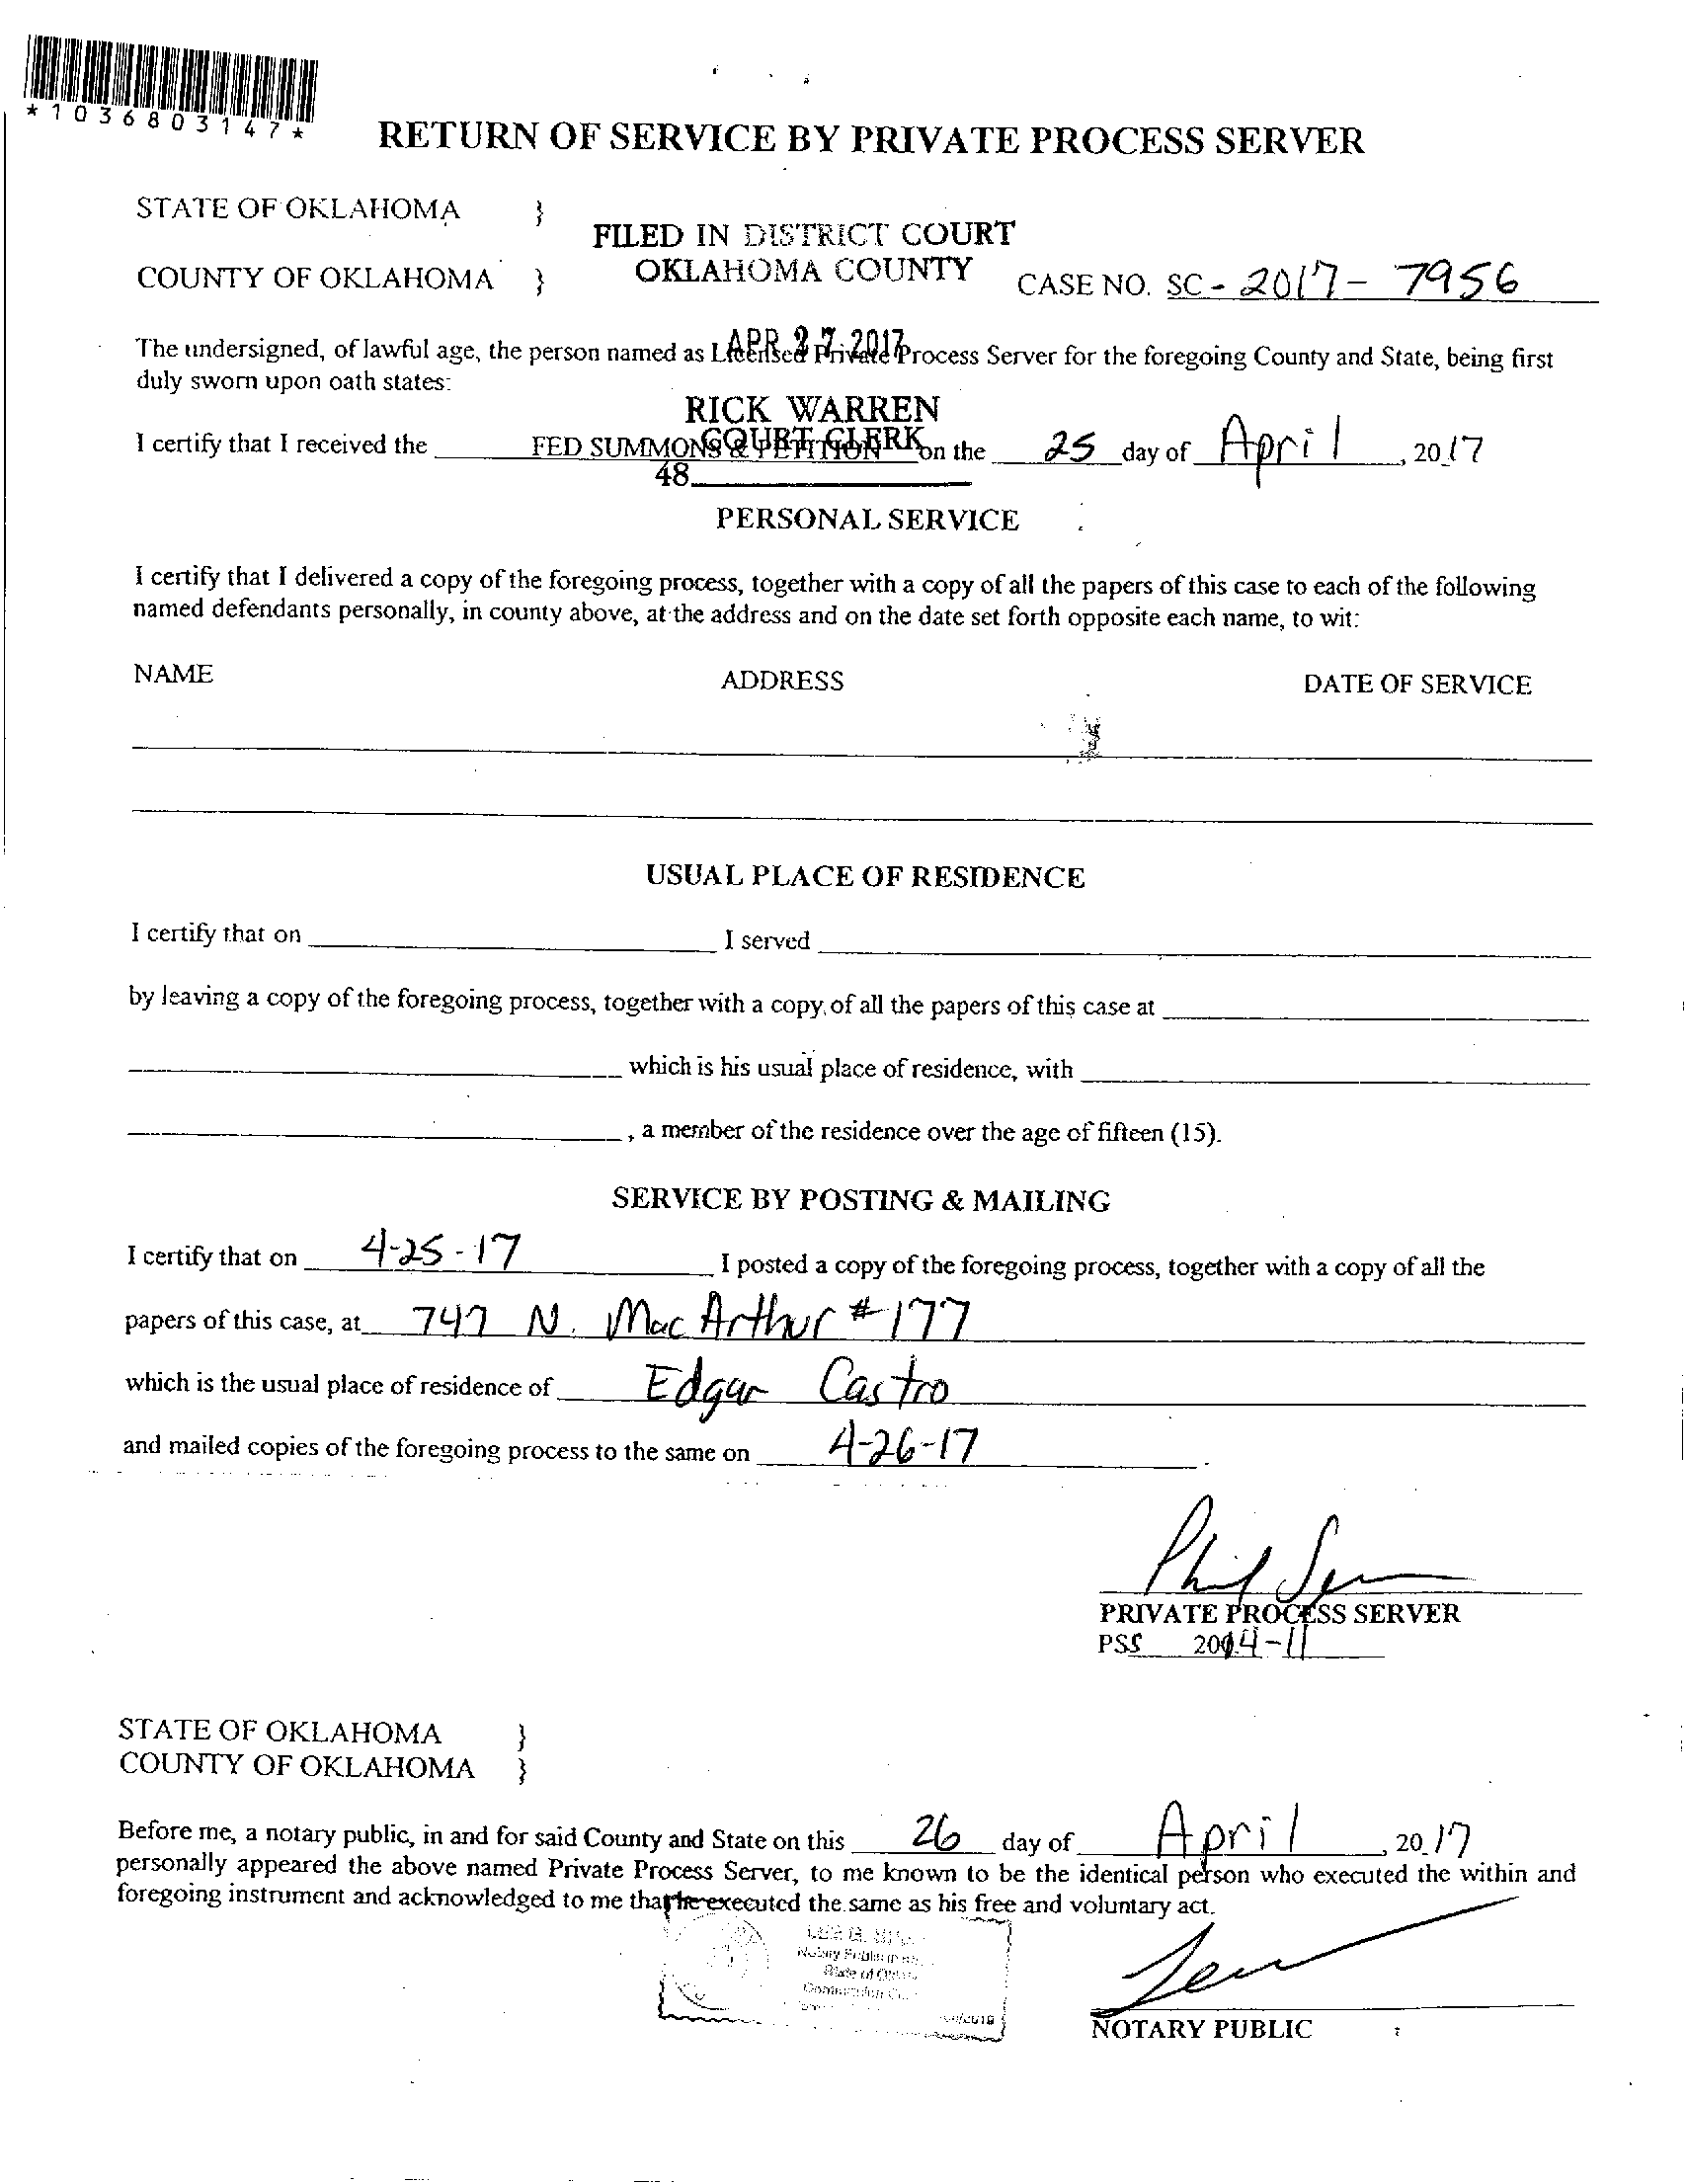 *1036803147*
RETURN OF SERVICE BY PRIVATE PROCESS SERVER
STATE OF OKLAHOMA }
FILED IN DISTRICT COURT
OKLAHOMA COUNTY
COUNTY OF OKLAHOMA } CASE NO. SC - 2017- 7956
APR 27 2017
The undersigned, of lawful age, the person named as Licensed Private Process Server for the foregoing County and State, being first
duly sworn upon oath states:
RICK WARREN
COURT CLERK
I certify that I received the FED SUMMONS & PETITION on the 25 day of April, 2017
48
PERSONAL SERVICE
I certify that I delivered a copy of the foregoing process, together with a copy of all the papers of this case to each of the following
named defendants personally, in county above, at the address and on the date set forth opposite each name, to wit:
NAME ADDRESS DATE OF SERVICE
USUAL PLACE OF RESIDENCE
I certify that on I served
by leaving a copy of the foregoing process, together with a copy of all the papers of this case at
which is his usual place of residence, with
, a member of the residence over the age of fifteen (15).
SERVICE BY POSTING & MAILING
I certify that on 4-25-17 I posted a copy of the foregoing process, together with a copy of all the
papers of this case, at 747 N. MacArthur #177
which is the usual place of residence of Edgar Castro
and mailed copies of the foregoing process to the same on 4-26-17.
PRIVATE PROCESS SERVER
PSS 2014-11
STATE OF OKLAHOMA }
COUNTY OF OKLAHOMA }
Before me, a notary public, in and for said County and State on this 26 day of April, 2017
personally appeared the above named Private Process Server, to me known to be the identical person who executed the within and
foregoing instrument and acknowledged to me that he executed the same as his free and voluntary act.
Notary Public
State of
Commission
NOTARY PUBLIC